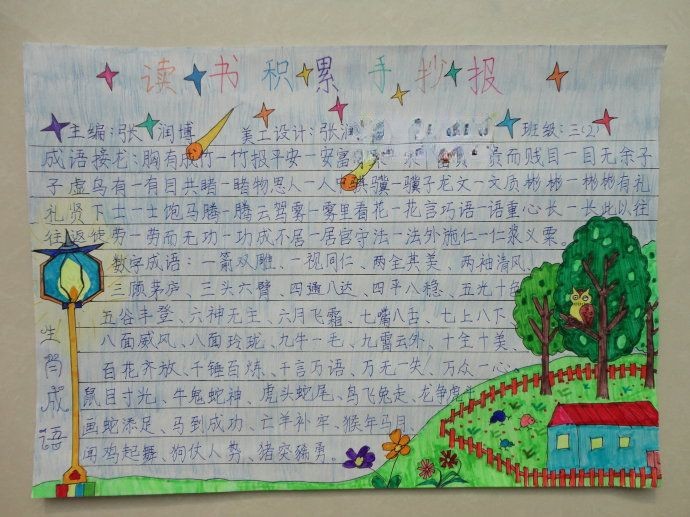 读书积累手抄报
主编:张润博 美工设计:张润 班级:三(2)
成语接龙:胸有成竹-竹报平安-安富 贵而贱目-目无余子
子虚乌有-有目共睹-睹物思人-人中骐骥-骥子龙文-文质彬彬-彬彬有礼
礼贤下士-士饱马腾-腾云驾雾-雾里看花-花言巧语-语重心长-长此以往
往返徒劳-劳而无功-功成不居-居官守法-法外施仁-仁浆义粟。
数字成语:一箭双雕、一视同仁、两全其美、两袖清风、
三顾茅庐、三头六臂、四通八达、四平八稳、五光十色
五谷丰登、六神无主、六月飞霜、七嘴八舌、七上八下、
八面威风、八面玲珑、九牛一毛、九霄云外、十全十美、
百花齐放、千锤百炼、千言万语、万无一失、万众一心、
生肖成语
鼠目寸光、牛鬼蛇神、虎头蛇尾、鸟飞兔走、龙争虎斗
画蛇添足、马到成功、亡羊补牢、猴年马月
闻鸡起舞、狗仗人势、猪突豨勇。